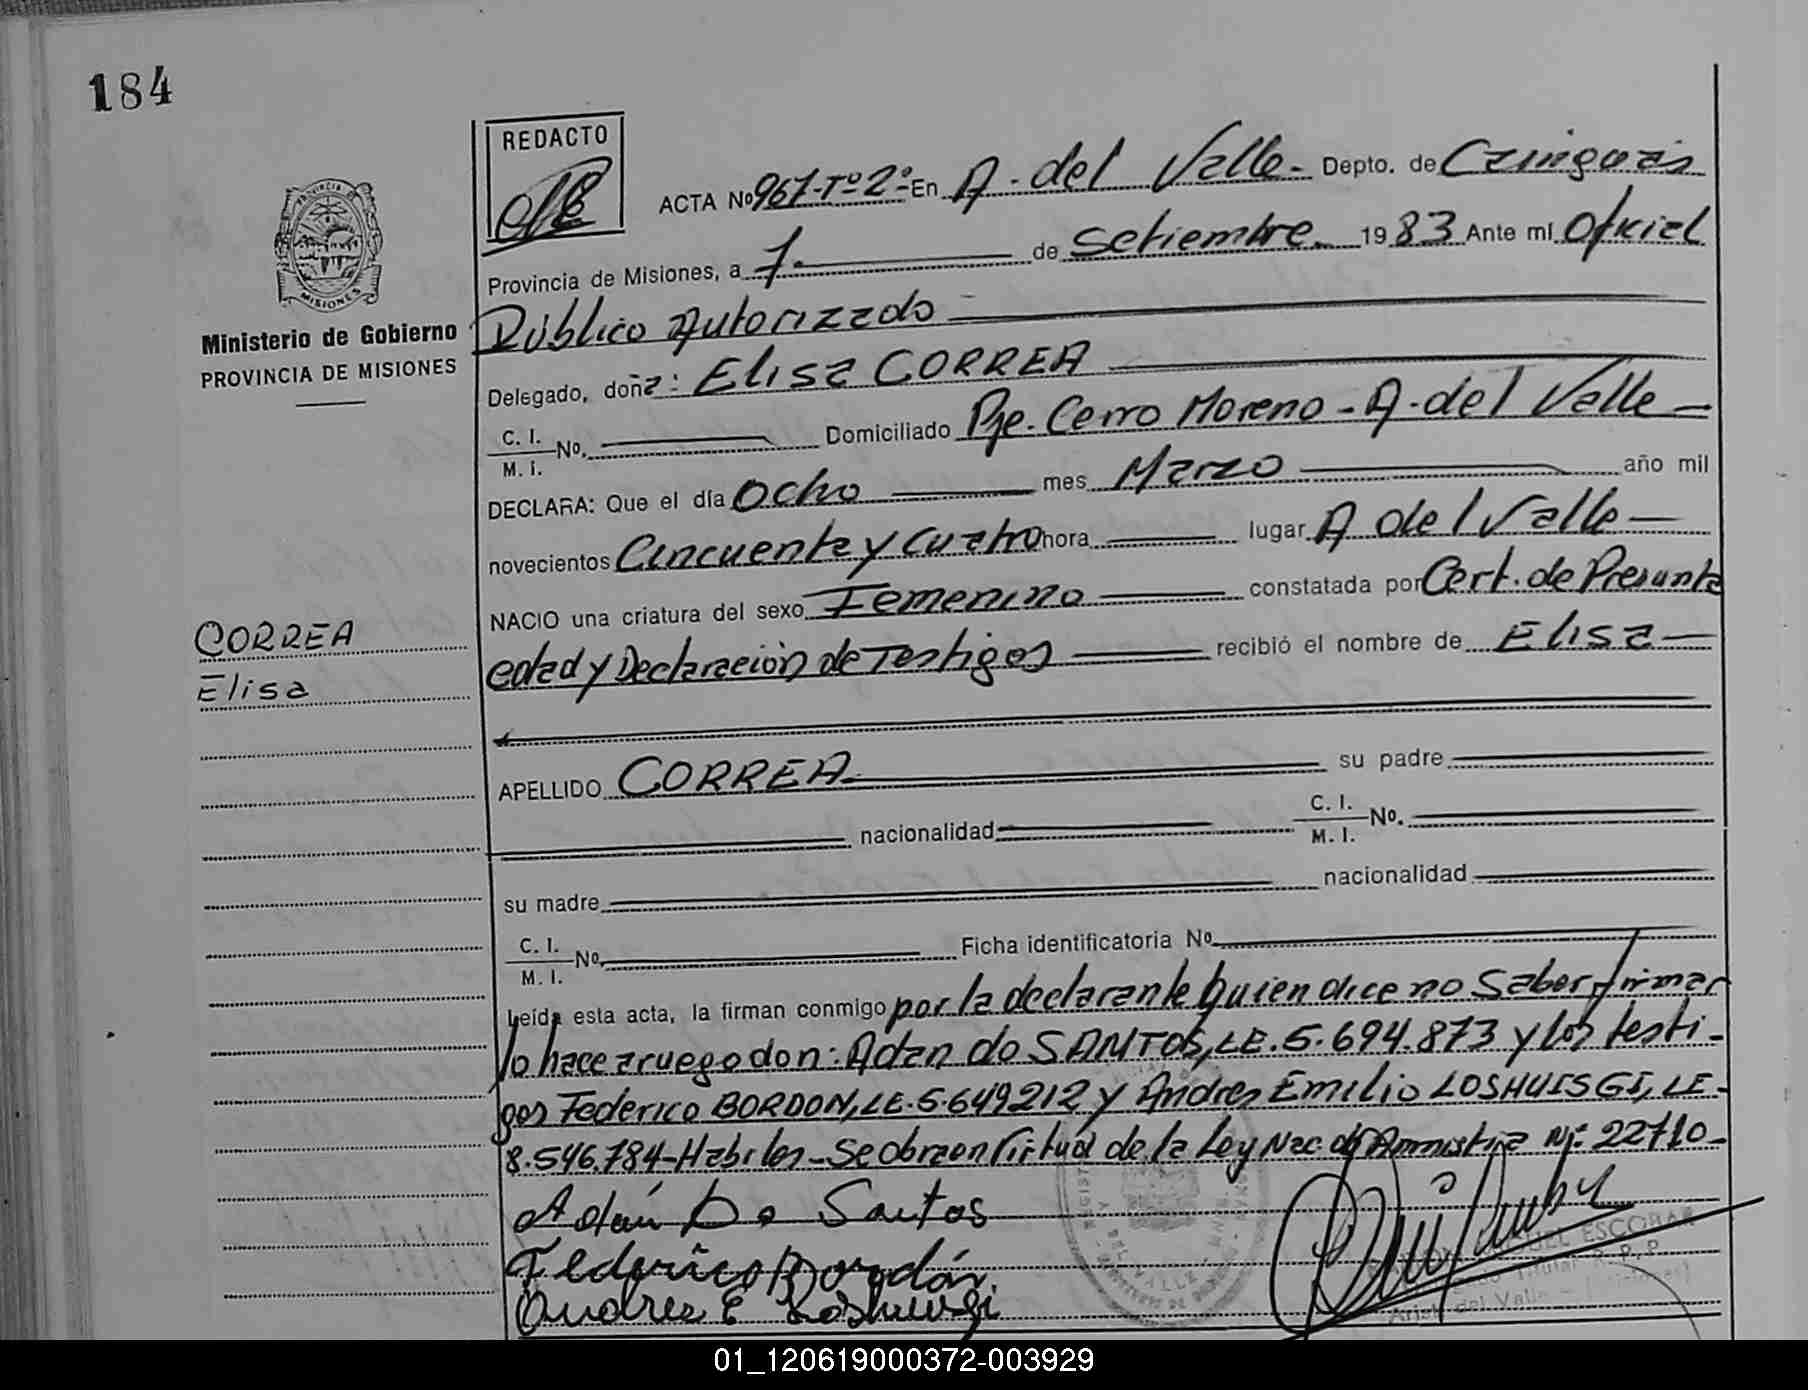 184
REDACTO
ACTA No 967-Tº2º- En A. del Valle - Depto. de Cainguás
Provincia de Misiones, a 7. de Setiembre 1983 Ante mí Oficial
Público Autorizado
Delegado, doña: Elisa CORREA
C. I.
M. I. No. Domiciliado Pje. Cerro Moreno - A. del Valle -
DECLARA: Que el día Ocho mes Marzo año mil
novecientos Cincuenta y Cuatro hora lugar A del Valle -
NACIO una criatura del sexo Femenino constatada por Cert. de Presunta
edad y Declaración de Testigos recibió el nombre de Elisa
APELLIDO CORREA su padre
nacionalidad C. I.
M. I. No.
su madre nacionalidad
C. I.
M. I. No. Ficha identificatoria No
Leída esta acta, la firman conmigo por la declarante quien dice no saber firmar
lo hace a ruego don: Adan do SANTOS, LE. 5.694.873 y los testi-
gos Federico BORDON, LE. 5.649212 y Andres Emilio LOSHUISGI, LE-
8.546.784 - Habiles - Se obra en Virtud de la Ley Nac. de Amnistia Nº 22710-
Adán Do Santos
Federico Bordón
Andres E Loshuisgi
ESCOBAR
Titular R. P. P
Arist. del Valle - (Misiones)
PROVINCIA DE
MISIONES
Ministerio de Gobierno
PROVINCIA DE MISIONES
CORREA
Elisa
01_120619000372-003929